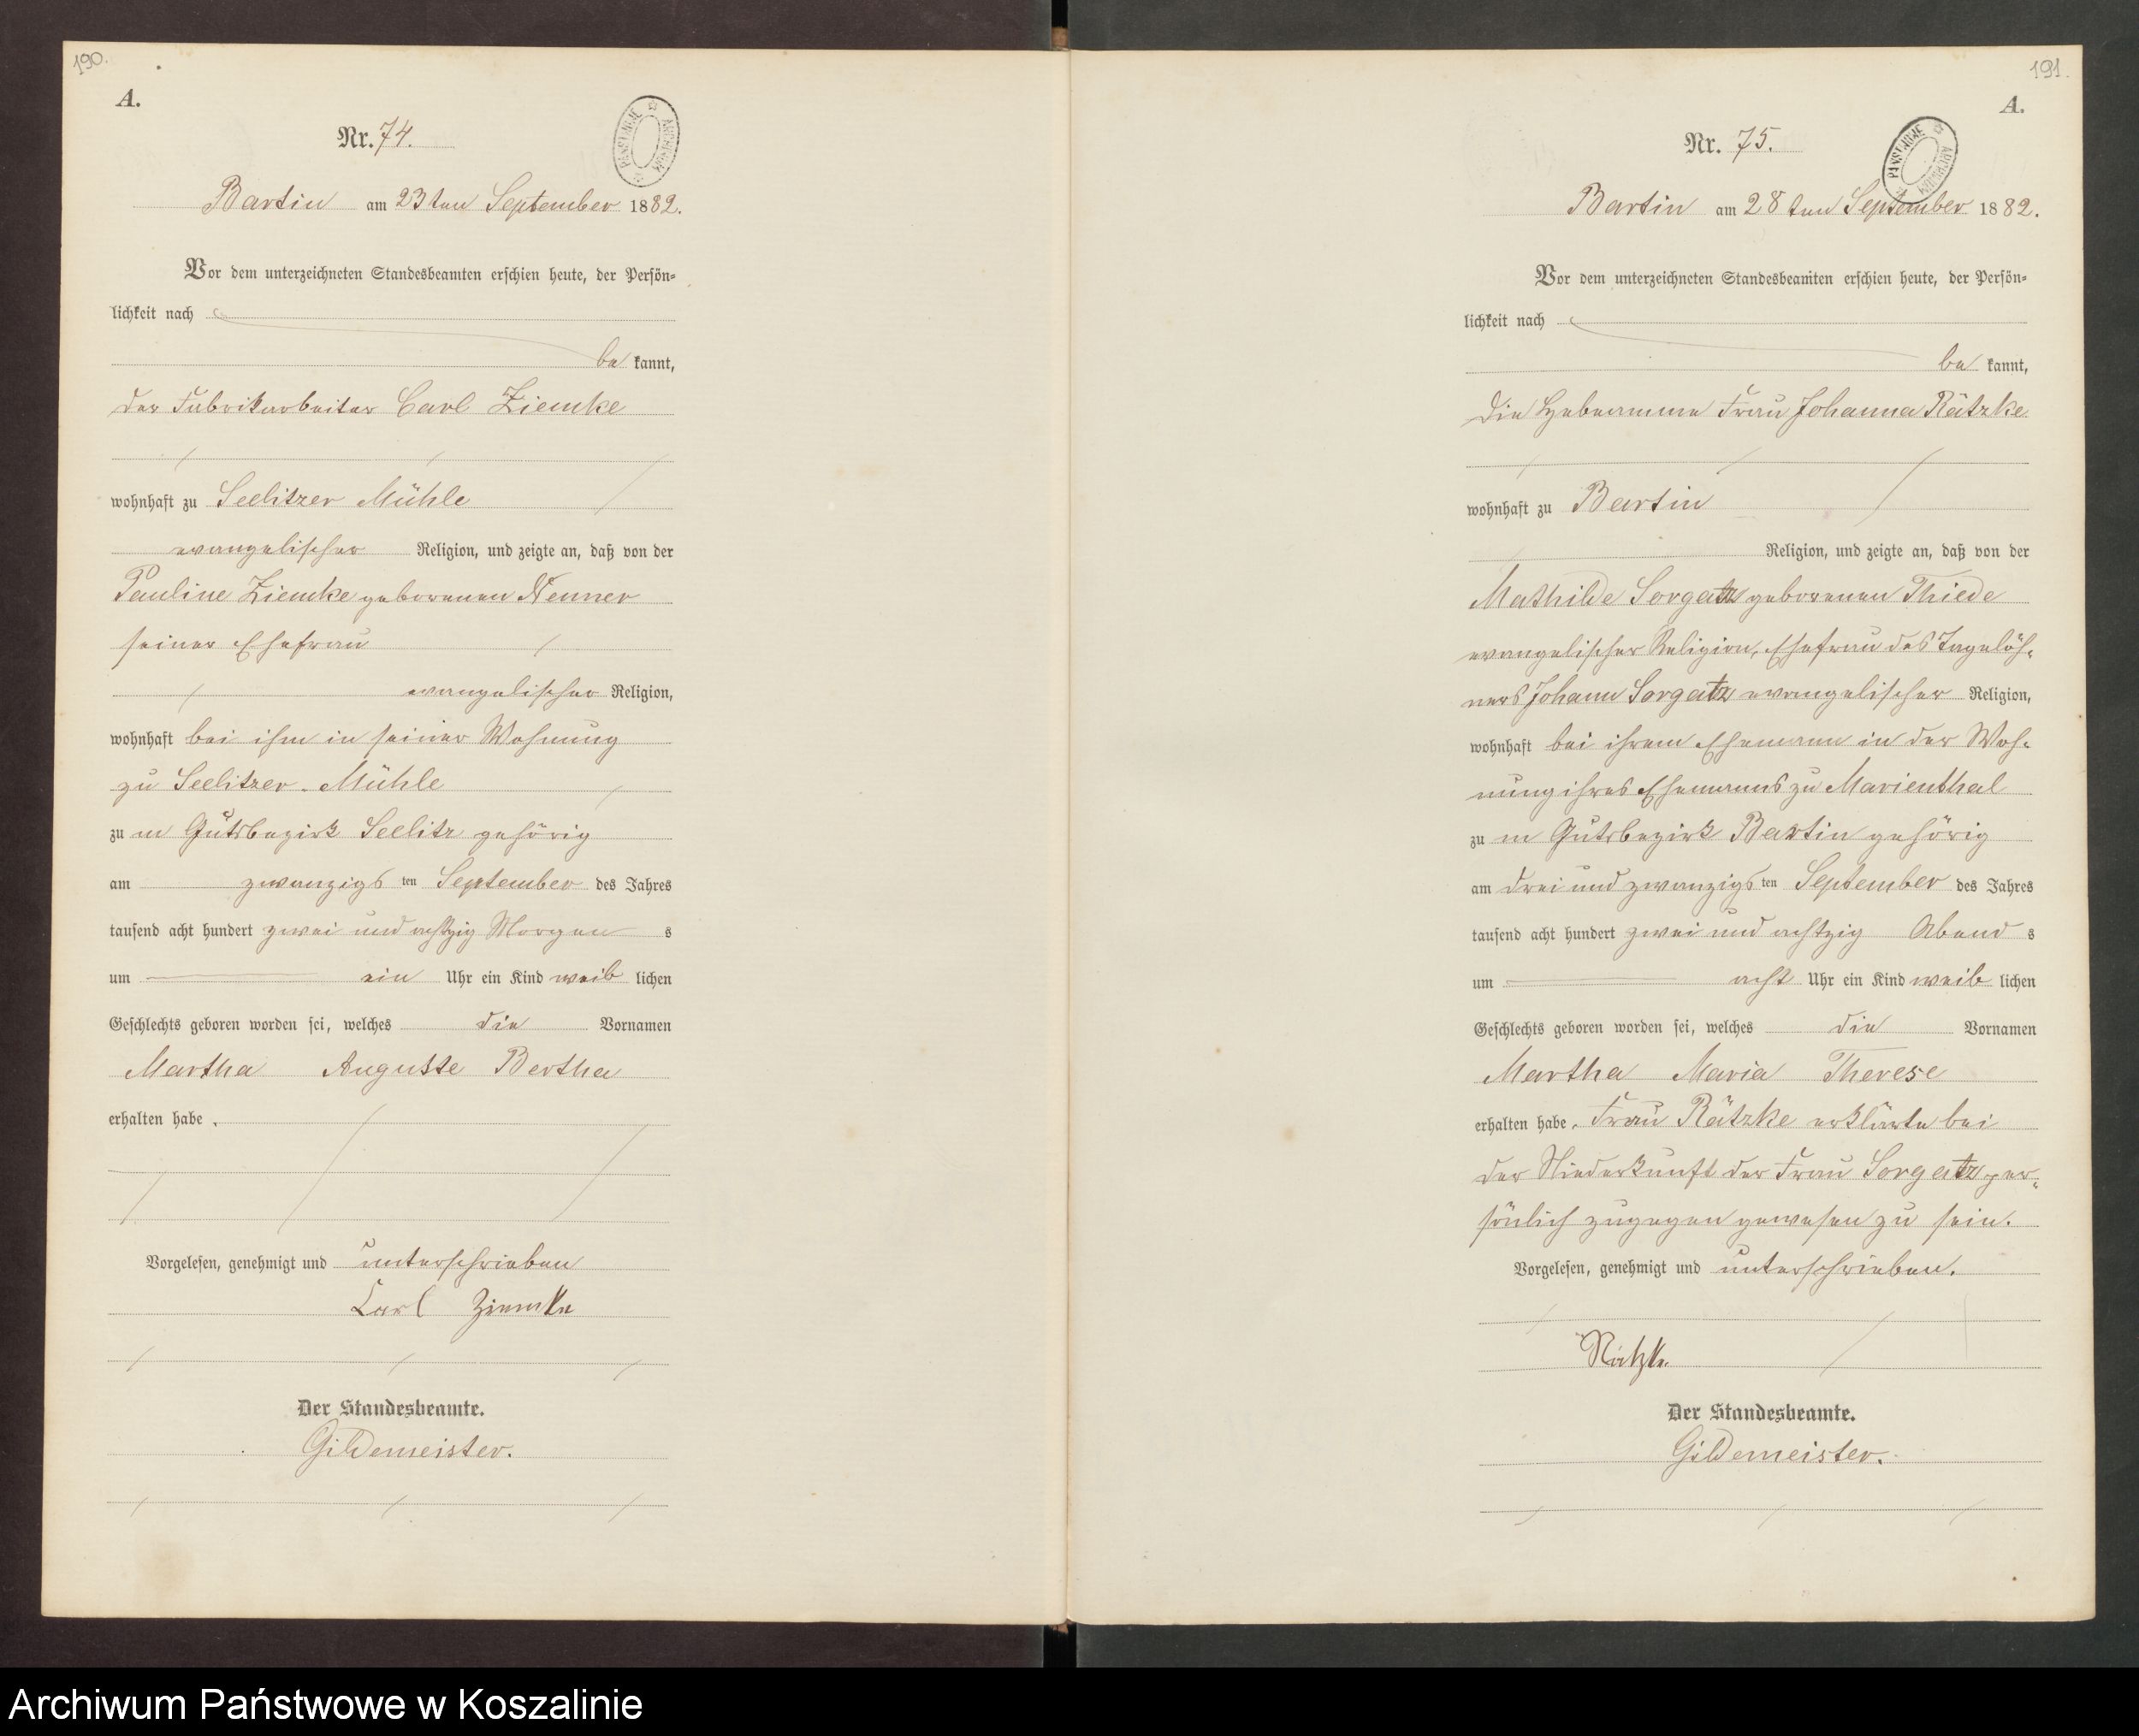 190.
A.
Nr. 74.
PAŃSTWOWE ARCHIWUM
Bartin am 23ten September 1882.
Vor dem unterzeichneten Standesbeamten erschien heute, der Persön-
lichkeit nach
be kannt,
der Fabrikarbeiter Carl Ziemke
wohnhaft zu Seelitzer Mühle
evangelischer Religion, und zeigte an, daß von der
Pauline Ziemke geborenen Nenner
seiner Ehefrau
evangelischer Religion,
wohnhaft bei ihm in seiner Wohnung
zu Seelitzer Mühle
zu m Gutsbezirk Seelitz gehörig
am zwanzigs ten September des Jahres
tausend acht hundert zwei und achtzig Morgen s
um ein Uhr ein Kind weib lichen
Geschlechts geboren worden sei, welches die Vornamen
Martha Auguste Bertha
erhalten habe.
Vorgelesen, genehmigt und unterschrieben
Carl Ziemke
Der Standesbeamte.
Gildemeister.
191.
A.
Nr. 75.
PAŃSTWOWE ARCHIWUM
Bartin am 28ten September 1882.
Vor dem unterzeichneten Standesbeamten erschien heute, der Persön-
lichkeit nach
be kannt,
die Hebeamme Frau Johanna Rätzke
wohnhaft zu Bartin
Religion, und zeigte an, daß von der
Mathilde Sorgatz geborenen Thiede
evangelischer Religion, Ehefrau des Tagelöh-
ners Johann Sorgatz evangelischer Religion,
wohnhaft bei ihrem Ehemann in der Woh-
nung ihres Ehemanns zu Marienthal
zu m Gutsbezirk Bartin gehörig
am drei und zwanzigs ten September des Jahres
tausend acht hundert zwei und achtzig Abend s
um acht Uhr ein Kind weib lichen
Geschlechts geboren worden sei, welches die Vornamen
Martha Maria Therese
erhalten habe. Frau Rätzke erklärte bei
der Niederkunft der Frau Sorgatz per-
sönlich zugegen gewesen zu sein.
Vorgelesen, genehmigt und unterschrieben.
Rätzke
Der Standesbeamte.
Gildemeister.
Archiwum Państwowe w Koszalinie